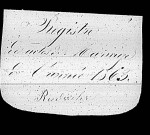 Registre
Des actes de Mariage
De l'année 1863.